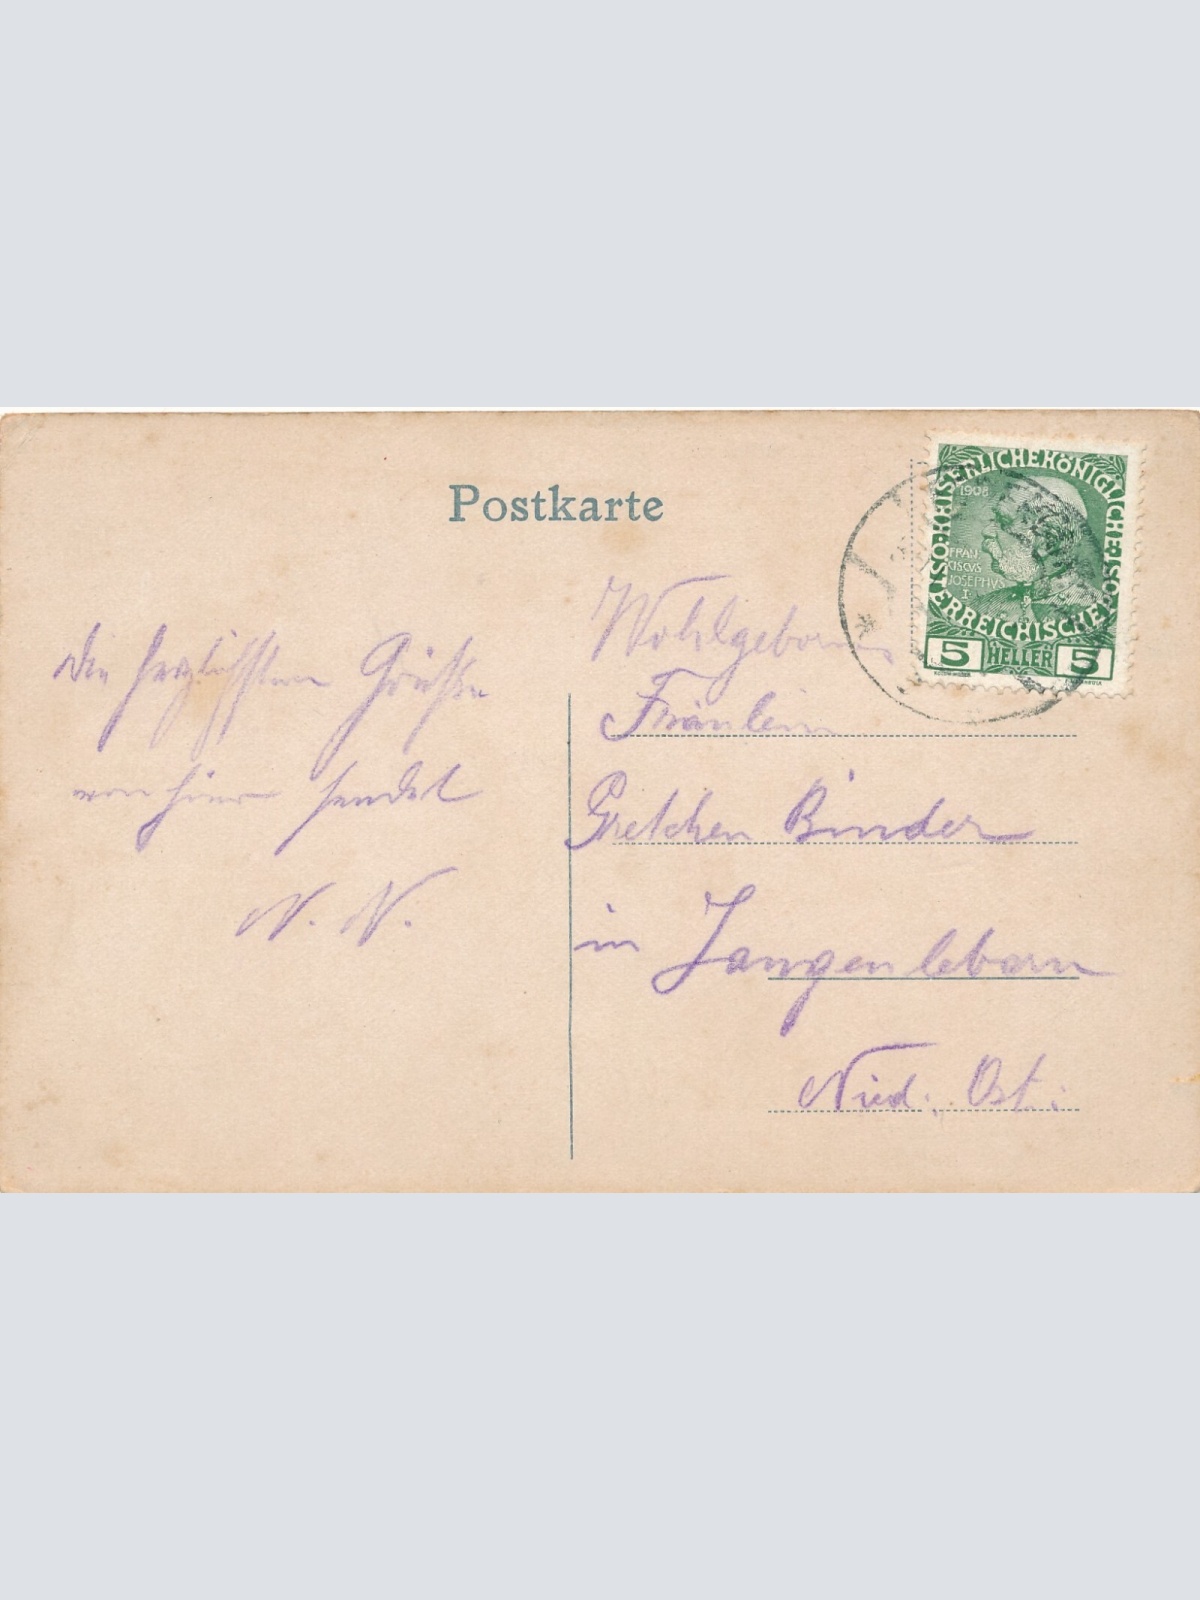 Postkarte
Die herzlichsten Grüße
von hier sendet
N. N.
Wohlgeboren
Fräulein
Gretchen Binder
in Langenlebarn
Nied. Öst.
KAISERLICHE KÖNIGLICHE ÖSTERREICHISCHE
1908
FRAN
CISCVS
IOSEPHVS
I
5 HELLER 5